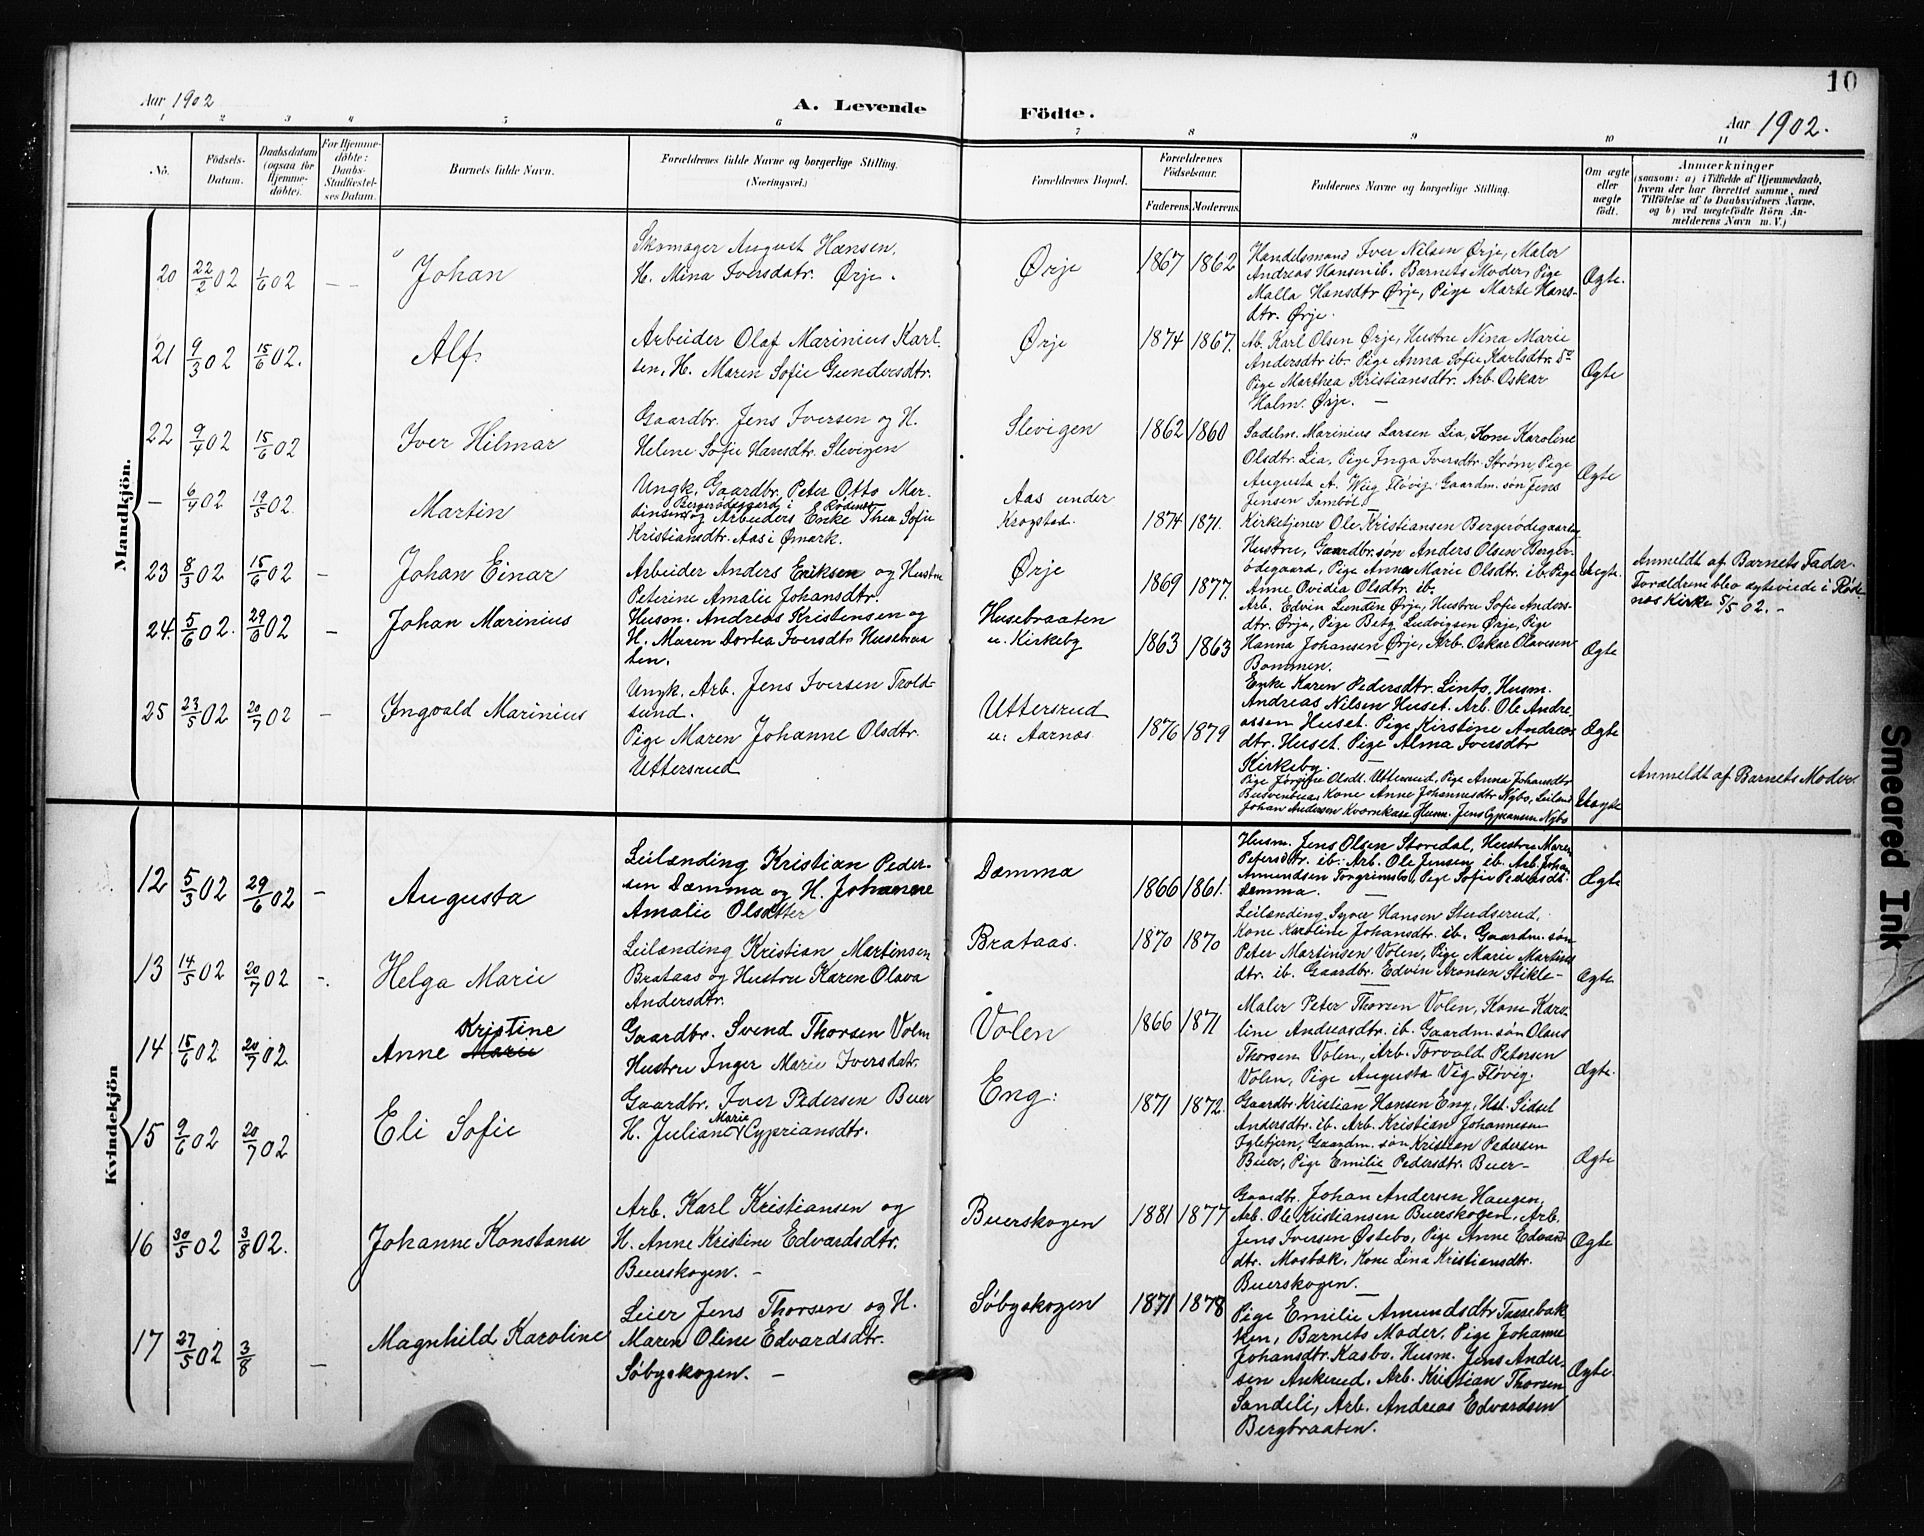 Aar 1902
A. Levende
Födte.
Aar 1902.
10
1 2 3 4 5 6 7 8 9 10 11
No.
Födsels-
Datum.
Daabsdatum
(ogsaa for
Hjemme-
döbte).
For Hjemme-
döbte:
Daabs-
Stadfæstel-
ses Datum.
Barnets fulde Navn.
Forældrenes fulde Navne og borgerlige Stilling.
(Næringsvei.)
Forældrenes Bopæl.
Forældrenes
Födselsaar.
Faderens. Moderens.
Faddernes Navne og borgerlige Stilling.
Om ægte
eller
uægte
födt.
Anmærkninger
(saasom: a) i Tilfælde af Hjemmedaab,
hvem der har forrettet samme, med
Tilföielse af to Daabsvidners Navne,
og b) ved uægtefödte Börn An-
melderens Navn m. V.)
Mandkjön.
20 22/2 02 1/6 02 — —
Johan
Skomager August Hansen,
H. Mina Iversdatr. Ørje.
Ørje
1867 1862
Handelsmand Iver Nilsen Ørje, Maler
Andreas Hansen ib. Barnets Moder, Pige
Malla Hansdtr Ørje, Pige Marte Hans-
dtr. Ørje.
Ægte.
21 9/3 02 15/6 02.
Alf.
Arbeider Olaf Marinius Karl-
sen, H. Maren Sofie Gundersdtr.
Ørje
1874 1867.
Ab. Karl Olsen Ørje, Hustru Nina Marie
Andersdtr ib. Pige Anna Sofie Karlsdtr. do
Pige Marthea Kristiansdtr. Arb. Oskar
Holm. Ørje. —
Ægte
22 9/4 02 15/6 02
Iver Hilmar
Gaardbr. Jens Iversen og H.
Helene Sofie Hansdtr. Slevigen
Slevigen
1862 1860
Sadelm. Marinius Larsen Lia, Kone Karoline
Olsdtr. Lia, Pige Inga Iversdtr. Strøm, Pige
Augusta A. Wiig Fløvig. Gaardm. søn Jens
Jensen Sambøl.
Ægte
— 6/4 02 19/5 02.
Martin
Ungk. Gaardbr. Peter Otto Mar-
tinsen Bergerødegaard i Rødenes
og Arbeiders Enke Thea Sofie
Kristiansdtr. Aas i Ømark.
Aas under
Krogstad.
1874 1871.
Kirketjener Ole Kristiansen Bergerødegaard og
Hustru, Gaardbr. søn Anders Olsen Berger-
ødegaard, Pige Anna Marie Olsdtr. ib. Pige
Anne Ovidia Olsdtr. ib.
Uægte.
Anmeldt af Barnets Fader.
Forældrene blev egteviede i Røde-
næs Kirke 5/5 02. —
23 8/3 02 15/6 02 —
Johan Einar
Arbeider Anders Eriksen og Hustru
Peterine Amalie Johansdtr.
Ørje
1869 1877.
Arb. Edvin Lunden Ørje, Hustru Sofie Anders-
dtr. Ørje, Pige Betzy Ludvigsen Ørje, Pige
Hanna Johansen Ørje, Arb. Oskar Olavesen
Bommen.
Ægte
24. 5/6 02. 29/6 02 —
Johan Marinius
Husm. Andreas Kristensen og
H. Maren Dortea Iversdtr. Husebraa-
ten.
Husebraaten
u. Kirkeby
1863 1863
Enke Karen Pedersdtr. Linto, Husm.
Andreas Nilsen Huset. Arb. Ole Andre-
assen Huset. Pige Kirstine Andreas-
dtr. Huset. Pige Alma Iversdtr
Kirkeby.
Ægte
25 23/5 02 20/7 02 —
Ingvald Marinius
Ungk. Arb. Jens Iversen Trold-
sund.
Pige Maren Johanne Olsdtr.
Uttersrud
Uttersrud
u. Aarnæs.
1876 1879
Pige Jørgine Olsdt. Uttersrud, Pige Anna Johansdtr
Kone Anne Johannesdtr Nybo, Leilænd.
Johan Andersen Kvernkasa Husm. Jens Cypriansen Nybo
Uægte
Anmeldt af Barnets Moder
Kvindekjön
12 5/3 02 29/6 02 —
Augusta
Leilænding Kristian Peder-
sen Damma og H. Johanne
Amalie Olsdatter
Damma
1866 1861.
Husm. Jens Olsen Storedal, Hustru Maren
Petersdtr. ib. Arb. Ole Jensen ib. Arb. Johan
Amundsen Torgrimsbø, Pige Sofie Pedersdt.
Damma. —
Ægte
13 14/5 02 20/7 02 —.
Helga Marie
Leilænding Kristian Martinsen
Brataas og Hustru Karen Olava
Andersdtr.
Brataas.
1870 1870
Leilænding Syver Hansen Studserud,
Kone Karoline Johansdtr. ib. Gaardm. søn
Peter Martinsen Volen, Pige Marie Martins-
dtr. ib. Gaardbr. Edvin Aronsen Stikle-
Ægte
14 15/6 02 20/7 02
Anne Marie Kristine
Gaardbr. Svend Thorsen Volen
Hustru Inger Marie Iversdatr.
Volen
1866 1871
Maler Peter Thorsen Volen, Kone Karo-
line Andreasdtr. ib. Gaardm. søn Olaus
Thorsen Volen, Arb. Torvald Petersen
Volen, Pige Augusta Vig Fløvig.
Ægte.
15 9/6 02 20/7 02
Eli Sofie
Gaardbr. Iver Pedersen Buer
H. Juliane Marie Cypriansdtr.
Eng.
1871 1872.
Gaardbr. Kristian Hansen Eng, Hst. Sidsel
Andersdtr. ib. Arb. Kristian Johannesen
Igletjern, Gaardm. søn Kristian Pedersen
Buer, Pige Emilie Pedersdtr. Buer —
Ægte
16 30/5 02 3/8 02.
Johanne Konstanse
Arb. Karl Kristiansen og
H. Anne Kristine Edvardsdtr.
Buerskogen. —
Buerskogen
1881 1877
Gaardbr. Johan Andersen Haugen,
Arb. Ole Kristiansen Buerskogen, Arb.
Jens Iversen Østebø, Pige Anne Edvards-
dtr. Mosbæk, Kone Lina Kristiansdtr.
Buerskogen. —
Ægte
17 27/5 02 3/8 —
Magnhild Karoline
Leier Jens Thorsen og H.
Maren Oline Edvardsdtr.
Søbyskogen. —
Søbyskogen
1871 1878
Pige Emilie Amundsdtr Tassebæk-
ken, Barnets Moder, Pige Johanne
Johansdtr. Kasbo, Husm. Jens Ander-
sen Ankerud, Arb. Kristian Thorsen
Sandeli, Arb. Andreas Edvardsen
Bergbraaten.
Ægte.
Smeared Ink